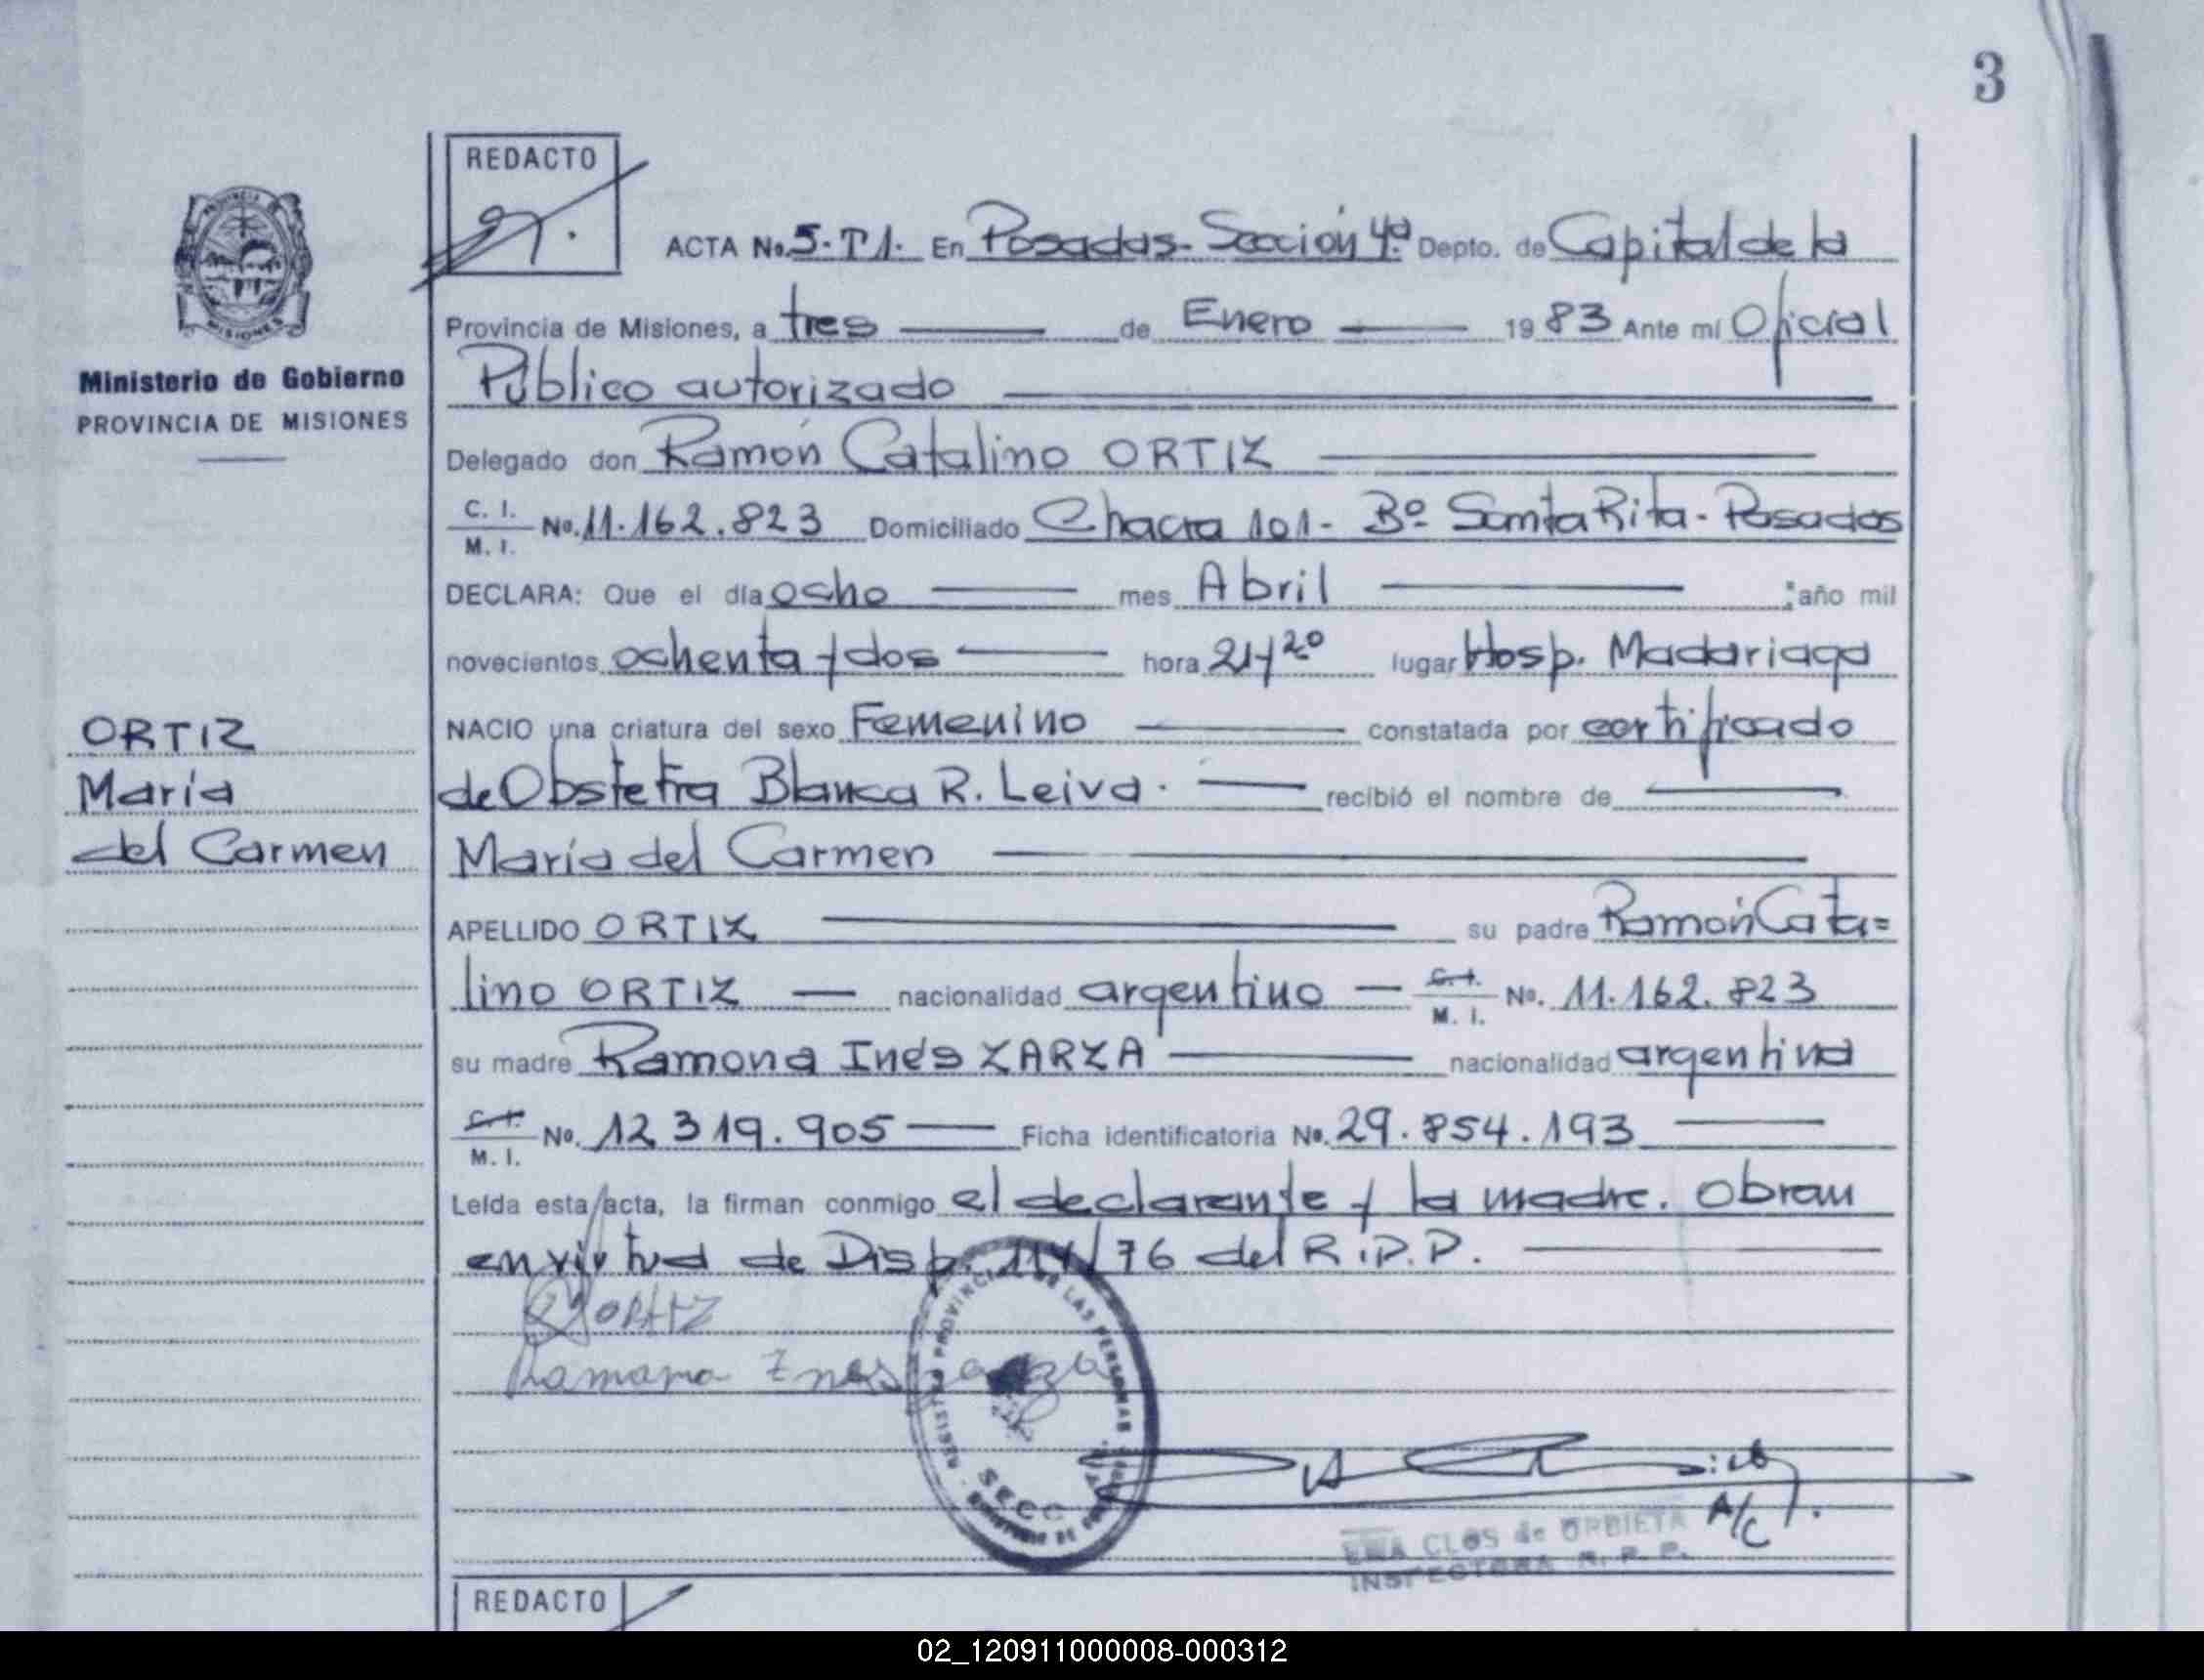 3
REDACTO
PROVINCIA DE
MISIONES
Ministerio de Gobierno
PROVINCIA DE MISIONES
ACTA No. 5-T1. En Posadas - Sección 4ª Depto. de Capital de la
Provincia de Misiones, a tres de Enero 1983 Ante mí Oficial
Público autorizado
Delegado don Ramón Catalino ORTIZ
C. I.
M. I. No. 11.162.823 Domiciliado Chacra 101 - Bº Santa Rita - Posadas
DECLARA: Que el día ocho mes Abril ; año mil
novecientos ochenta y dos hora 21 y 20 lugar Hosp. Madariaga
NACIO una criatura del sexo Femenino constatada por certificado
de Obstetra Blanca R. Leiva. recibió el nombre de
María del Carmen
ORTIZ
María
del Carmen
APELLIDO ORTIZ su padre Ramón Cata=
lino ORTIZ nacionalidad argentino C. I.
M. I. No. 11.162.823
su madre Ramona Inés ZARZA nacionalidad argentina
C. I.
M. I. No. 12.319.905 Ficha identificatoria No. 29.854.193
Leída esta acta, la firman conmigo el declarante y la madre. Obran
en virtud de Disp. /76 del R.P.P.
ORTIZ
Ramona Ines
REGISTRO PROVINCIAL DE LAS PERSONAS
SECC
A/C
CLOS de URBIETA
INSPECTORA R. P. P.
REDACTO
02_120911000008-000312